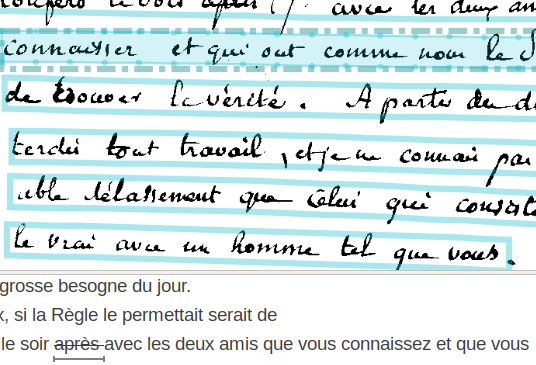 le vois après 7h. avec les deux am
connaissez et qui ont comme nous le d
de trouver la vérité. A partir du d
terdit tout travail, et je ne connais pas
able délassement que celui qui consiste
le vrai avec un homme tel que vous.
grosse besogne du jour.
x, si la Règle le permettait serait de
le soir après avec les deux amis que vous connaissez et que vous